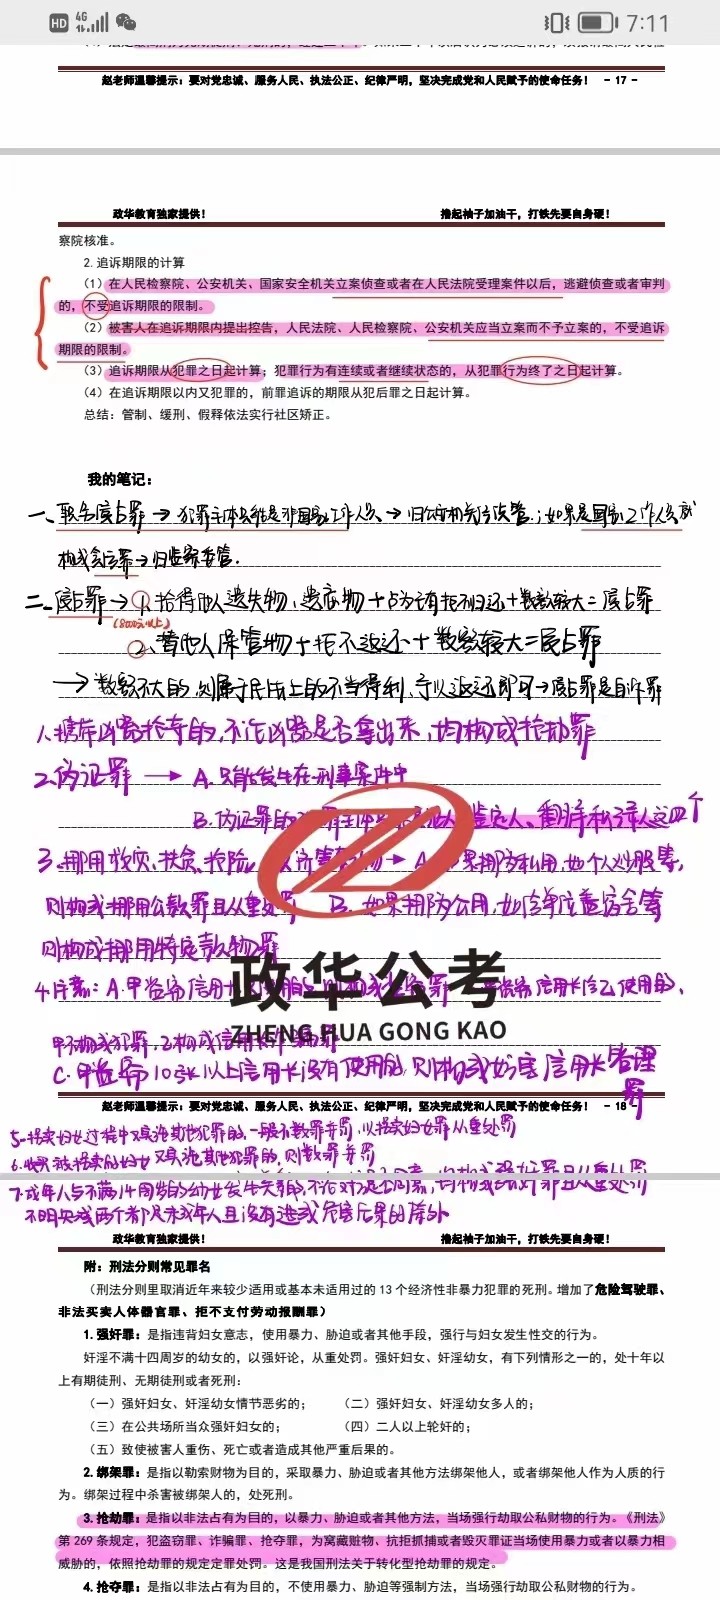 HD 4G 7:11
赵老师温馨提示：要对党忠诚、服务人民、执法公正、纪律严明，坚决完成党和人民赋予的使命任务！ - 17 -
政华教育独家提供！ 撸起袖子加油干，打铁先要自身硬！
察院核准。
2.追诉期限的计算
（1）在人民检察院、公安机关、国家安全机关立案侦查或者在人民法院受理案件以后，逃避侦查或者审判
的，不受追诉期限的限制。
（2）被害人在追诉期限内提出控告，人民法院、人民检察院、公安机关应当立案而不予立案的，不受追诉
期限的限制。
（3）追诉期限从犯罪之日起计算；犯罪行为有连续或者继续状态的，从犯罪行为终了之日起计算。
（4）在追诉期限以内又犯罪的，前罪追诉的期限从犯后罪之日起计算。
总结：管制、缓刑、假释依法实行社区矫正。
我的笔记：
一、职务侵占罪→犯罪主体只能是非国家工作人员→归公安机关管；如果是国家工作人员就
构成贪污罪→归监察委管.
二、侵占罪→1.拾得他人遗失物、遗忘物+占为己有拒不归还+数额较大=侵占罪
(8000元以上)
2.替他人保管物+拒不返还+数额较大=侵占罪
→数额不大的,则属于民法上的不当得利,予以返还即可→侵占罪是自诉罪
1.携带凶器抢夺的,不论凶器是否拿出来,均构成抢劫罪
2.伪证罪→A.只能发生在刑事案件中
B.伪证罪的 鉴定人、翻译和记录人这四个
3.挪用救灾、扶贫、抢险 →A 挪为私用,如个人炒股等,
则构成挪用公款罪且从重处罚 B.如果挪为公用,如信
则构成挪用特定款物罪
4. A.甲 信用卡 信用卡给乙使用的,
甲不构成犯罪,乙构成信用卡
C.甲 10张以上信用卡没有使用的,则构成妨害信用卡管理
罪
政华公考
ZHENG HUA GONG KAO
赵老师温馨提示：要对党忠诚、服务人民、执法公正、纪律严明，坚决完成党和人民赋予的使命任务！ - 18 -
5.拐卖妇女过程中又实施其他犯罪的,一般不数罪并罚,以拐卖妇女罪从重处罚
6.收买被拐卖的妇女又实施其他犯罪的,则数罪并罚
7.成年人与不满14周岁的幼女发生关系的,不论对方是否同意,均构成强奸罪且从重处罚
不明知或两个都是未成年人且没有造成危害后果的除外
政华教育独家提供！ 撸起袖子加油干，打铁先要自身硬！
附：刑法分则常见罪名
（刑法分则里取消近年来较少适用或基本未适用过的 13 个经济性非暴力犯罪的死刑。增加了危险驾驶罪、
非法买卖人体器官罪、拒不支付劳动报酬罪）
1.强奸罪：是指违背妇女意志，使用暴力、胁迫或者其他手段，强行与妇女发生性交的行为。
奸淫不满十四周岁的幼女的，以强奸论，从重处罚。强奸妇女、奸淫幼女，有下列情形之一的，处十年以
上有期徒刑、无期徒刑或者死刑：
（一）强奸妇女、奸淫幼女情节恶劣的； （二）强奸妇女、奸淫幼女多人的；
（三）在公共场所当众强奸妇女的； （四）二人以上轮奸的；
（五）致使被害人重伤、死亡或者造成其他严重后果的。
2.绑架罪：是指以勒索财物为目的，采取暴力、胁迫或者其他方法绑架他人，或者绑架他人作为人质的行
为。绑架过程中杀害被绑架人的，处死刑。
3.抢劫罪：是指以非法占有为目的，以暴力、胁迫或者其他方法，当场强行劫取公私财物的行为。《刑法》
第 269 条规定，犯盗窃罪、诈骗罪、抢夺罪，为窝藏赃物、抗拒抓捕或者毁灭罪证当场使用暴力或者以暴力相
威胁的，依照抢劫罪的规定定罪处罚。这是我国刑法关于转化型抢劫罪的规定。
4.抢夺罪：是指以非法占有为目的，不使用暴力、胁迫等强制方法，当场强行劫取公私财物的行为。